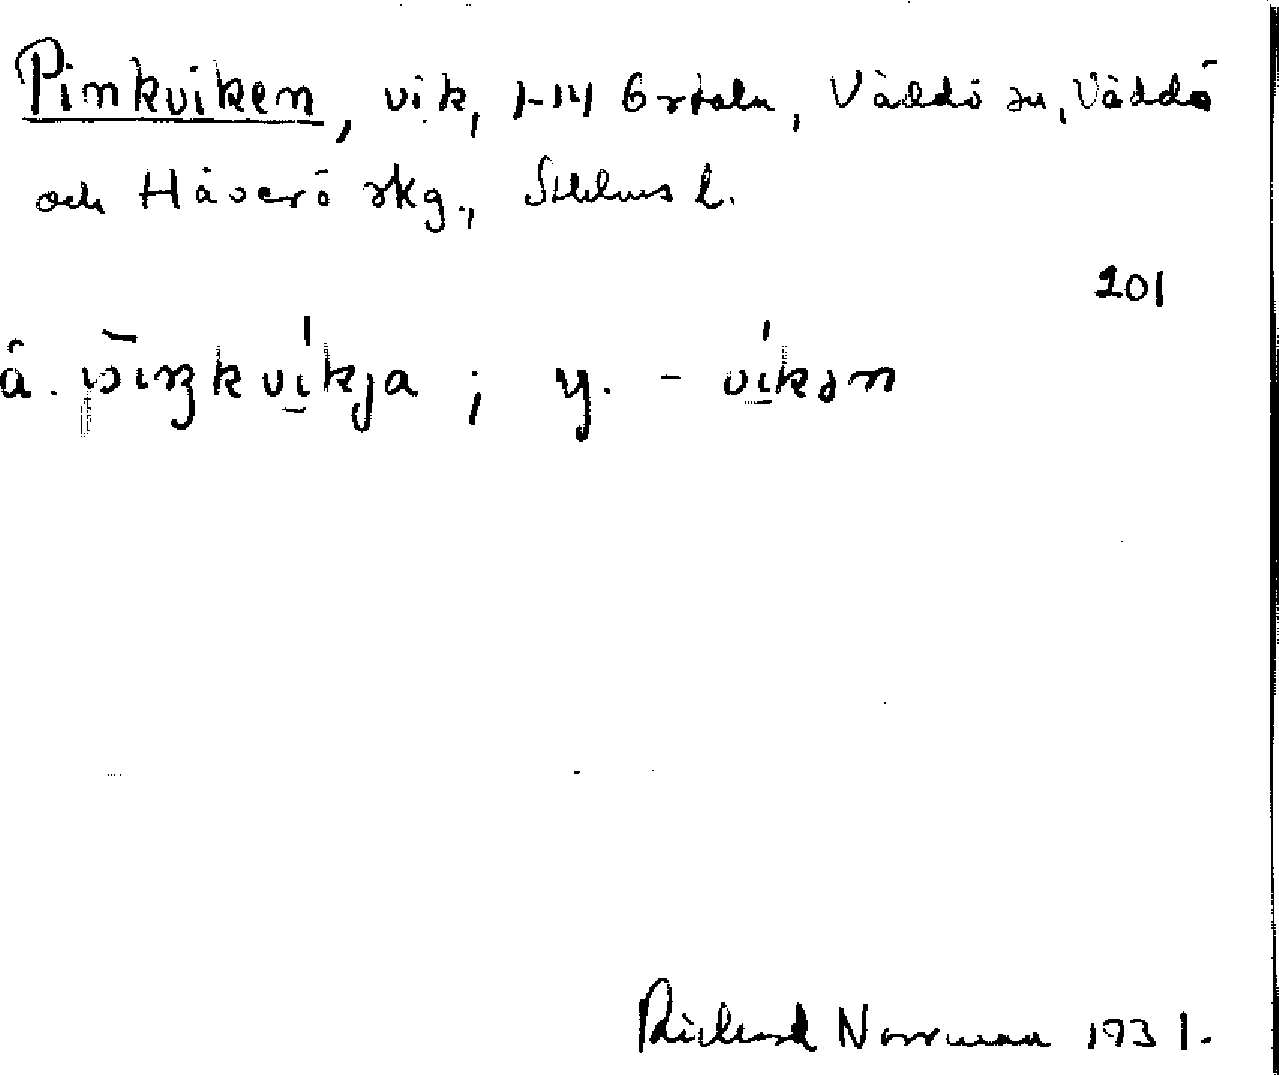 Pinkviken, vik, 1-14 Ortala, Väddö sn, Väddö
och Häverö skg., Sthlms l.
201
ä. pıŋkvíkja ; y. - víkən
Richard Norrman 1931.